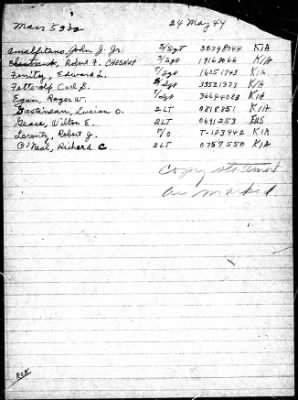 Macr 5322 24 May 44
Amalfitano, John J. Jr. S/Sgt 32798044 KIA
Robert F. CHESNUT S/Sgt 19169066 KIA
Fenity, Edward L. T/Sgt 16051743 KIA
Fetterolf Carl D. S/Sgt 33521377 KIA
Egan, Roger W. T/Sgt 36644083 KIA
Bastinean, Lucian O. 2LT 0818851 KIA
Gease, Wilton E. 2LT 0691253 EUS
Lorentz, Robert J. F/O T-123942 KIA
O'Neal, Richard C 2LT 0757550 KIA
Copy statement
as marked